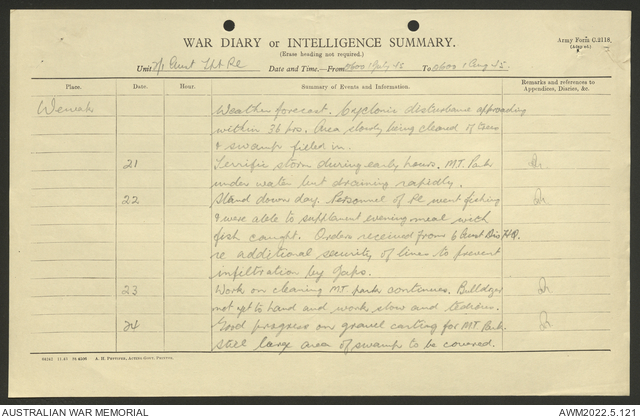 Army Form C.2118.
(Adapted)
WAR DIARY or INTELLIGENCE SUMMARY.
(Erase heading not required.)
Unit 2/1 Aust Lt Pl
Date and Time.—From 0600 1 July 45 To 0600 1 Aug 45.
Place. Date. Hour. Summary of Events and Information. Remarks and references to Appendices, Diaries, &c.
Wewak Weather forecast. Cyclonic disturbance approaching
within 36 hrs. Area slowly being cleared of trees
& swamp filled in.
21 Terrific storm during early hours. MT. Park
under water but draining rapidly.
22 Stand down day. Personnel of Pl went fishing
& were able to supplement evening meal with
fish caught. Orders received from 6 Aust Div HQ.
re additional security of lines to prevent
infiltration by Japs.
23 Work on cleaning MT park continues. Bulldozer
not yet to hand and work slow and tedious.
24 Good progress on gravel carting for MT. Park.
Still large area of swamp to be covered.
AUSTRALIAN WAR MEMORIAL
AWM2022.5.121